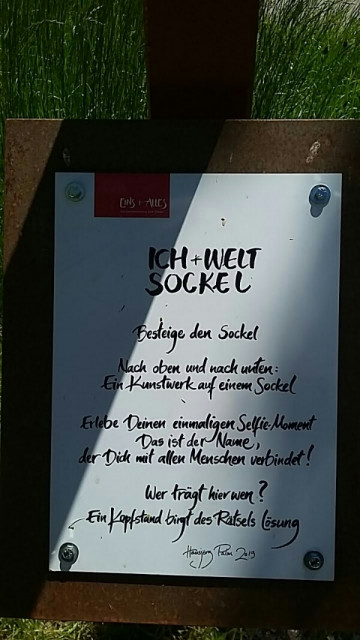 EINS + ALLES
ICH + WELT
SOCKEL
Besteige den Sockel
Nach oben und nach unten:
Ein Kunstwerk auf einem Sockel
Erlebe Deinen einmaligen Selfie-Moment
Das ist der Name,
der Dich mit allen Menschen verbindet!
Wer trägt hier wen?
Ein Kopfstand birgt des Rätsels Lösung
2019